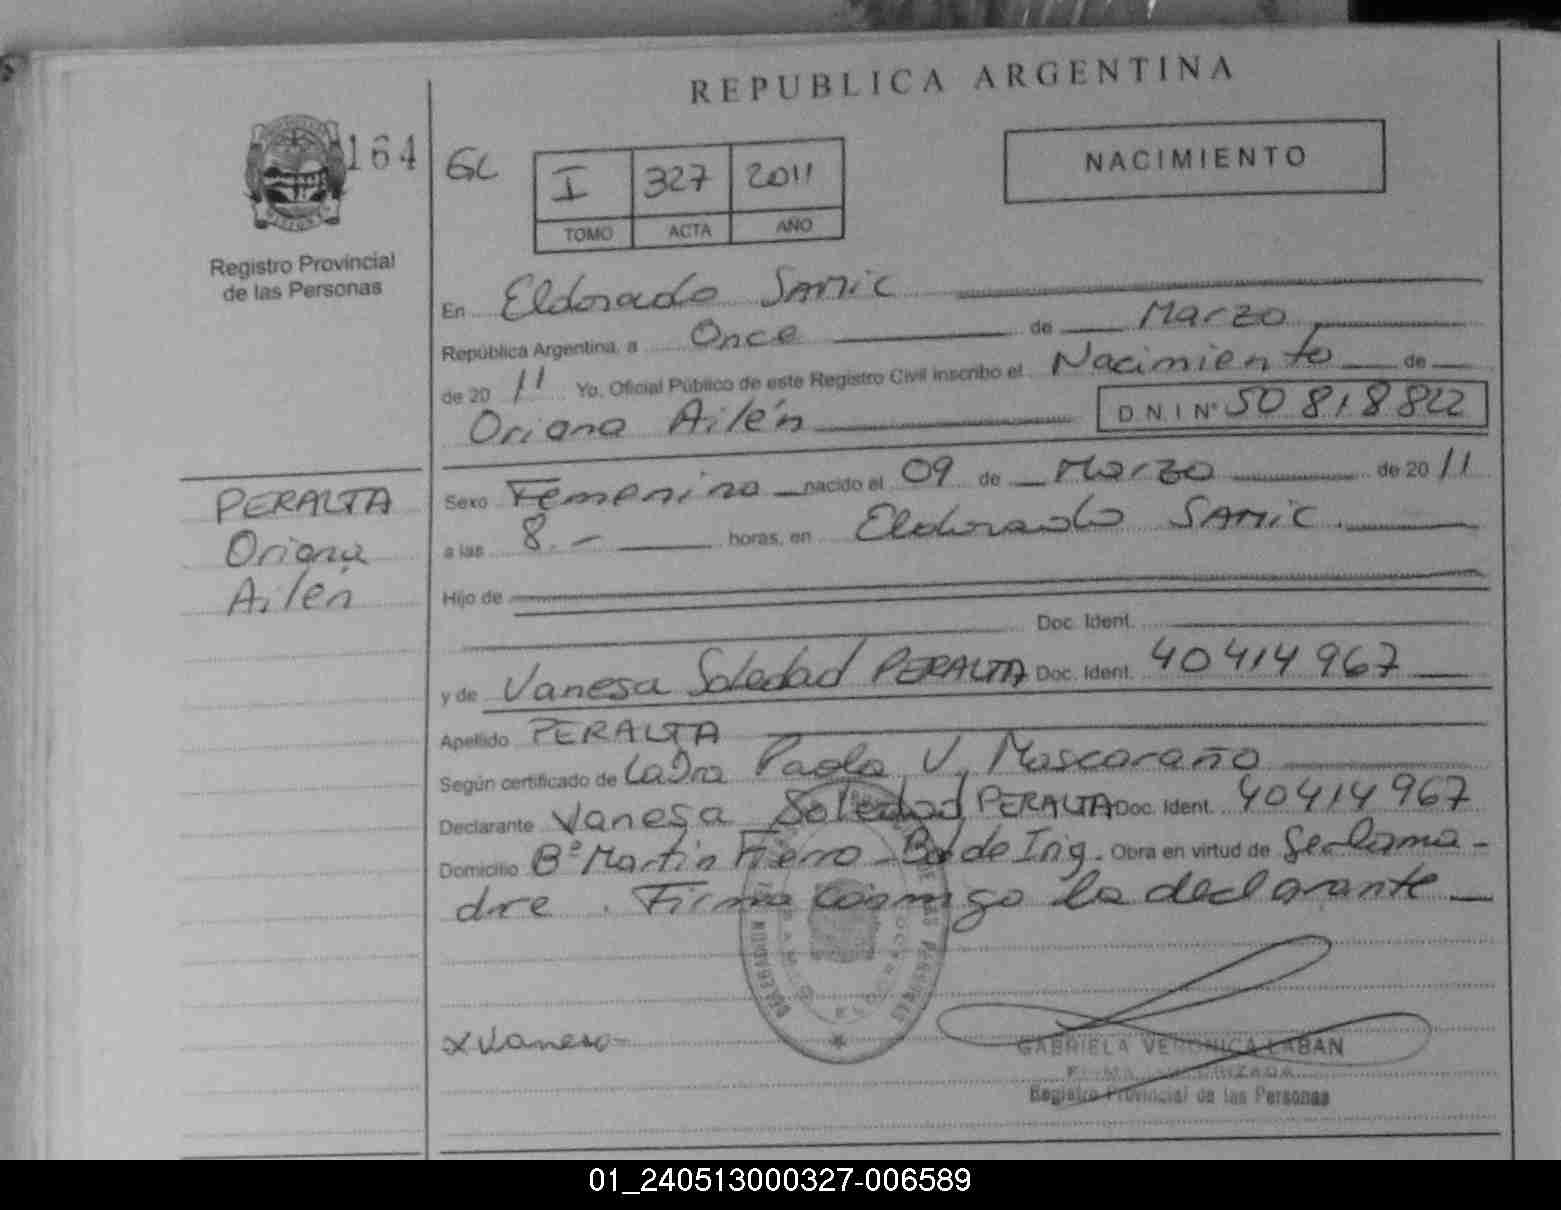 REPUBLICA ARGENTINA
164
GL
I 327 2011
TOMO ACTA AÑO
NACIMIENTO
Registro Provincial
de las Personas
En Eldorado SAMIC
República Argentina, a Once de Marzo
de 20 11 Yo, Oficial Público de este Registro Civil inscribo el Nacimiento de
Oriana Ailén D.N.I Nº 50 818 822
PERALTA
Oriana
Ailén
Sexo Femenino nacido el 09 de Marzo de 20 11
a las 8.- horas, en Eldorado SAMIC.
Hijo de
Doc. Ident.
y de Vanesa Soledad PERALTA Doc. Ident. 40414967
Apellido PERALTA
Según certificado de La Dra Paola V. Mascaraño
Declarante Vanesa Soledad PERALTA Doc. Ident. 40414967
Domicilio Bº Martin Fierro - Bº de Ing. Obra en virtud de Ser la ma-
dre. Firma conmigo la declarante
x Vanesa
GABRIELA VERONICA LABAN
FIRMA AUTORIZADA
Registro Provincial de las Personas
01_240513000327-006589